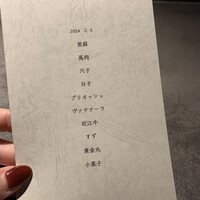 2024 . 2. 3
馬肉
穴子
白子
ブリオッシュ
ヴァテナーラ
近江牛
すず
黄金丸
小菓子